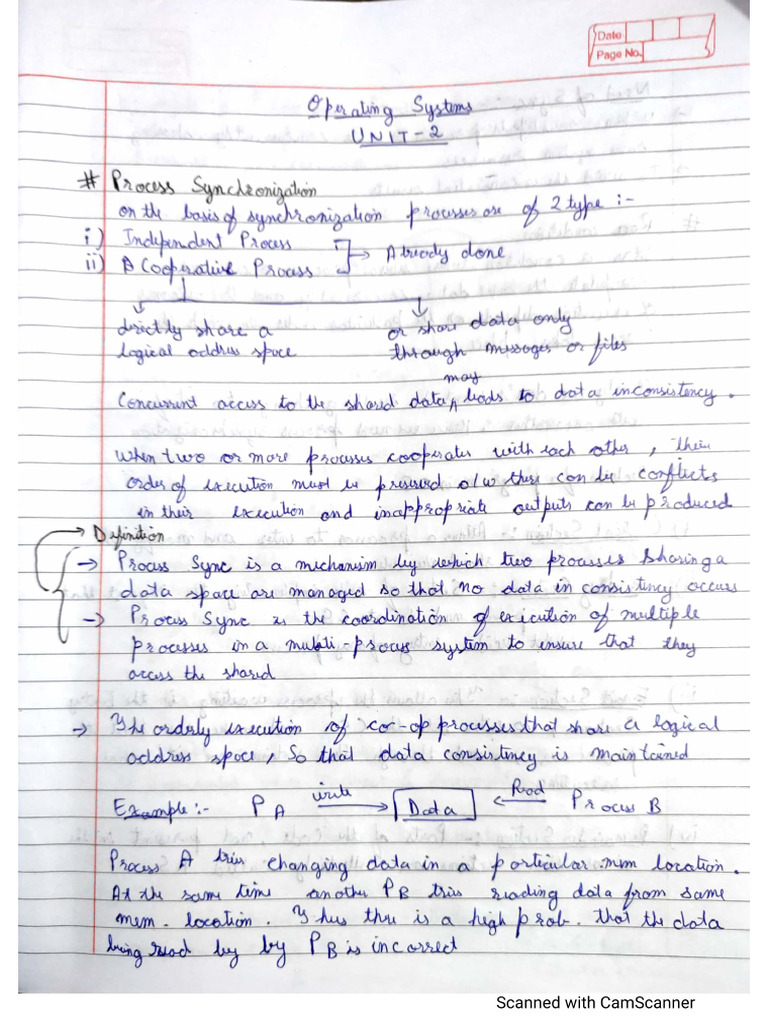 Date
Page No.
Operating Systems
UNIT-2
# Process Synchronization
on the basis of synchronization processes are of 2 type :-
i) Independent Process
ii) Cooperative Process
→ Already done
directly share a
logical address space
or share data only
through messages or files
may
Concurrent access to the shared data ^ leads to data inconsistency.
When two or more processes cooperates with each other, their
order of execution must be preserved o/w there can be conflicts
in their execution and inappropriate outputs can be produced
Definition
→ Process Sync is a mechanism by which two processes sharing a
data space are managed so that no data in consistency occurs
→ Process Sync is the coordination of execution of multiple
processes in a multi-process system to ensure that they
access the shared
→ The orderly execution of co-op processes that share a logical
address space, So that data consistency is maintained
Example :- PA write → Data ← Read Process B
Process A tries changing data in a particular mem location.
At the same time another PB tries reading data from same
mem. location. Thus there is a high prob. that the data
being read by by PB is incorrect
Scanned with CamScanner